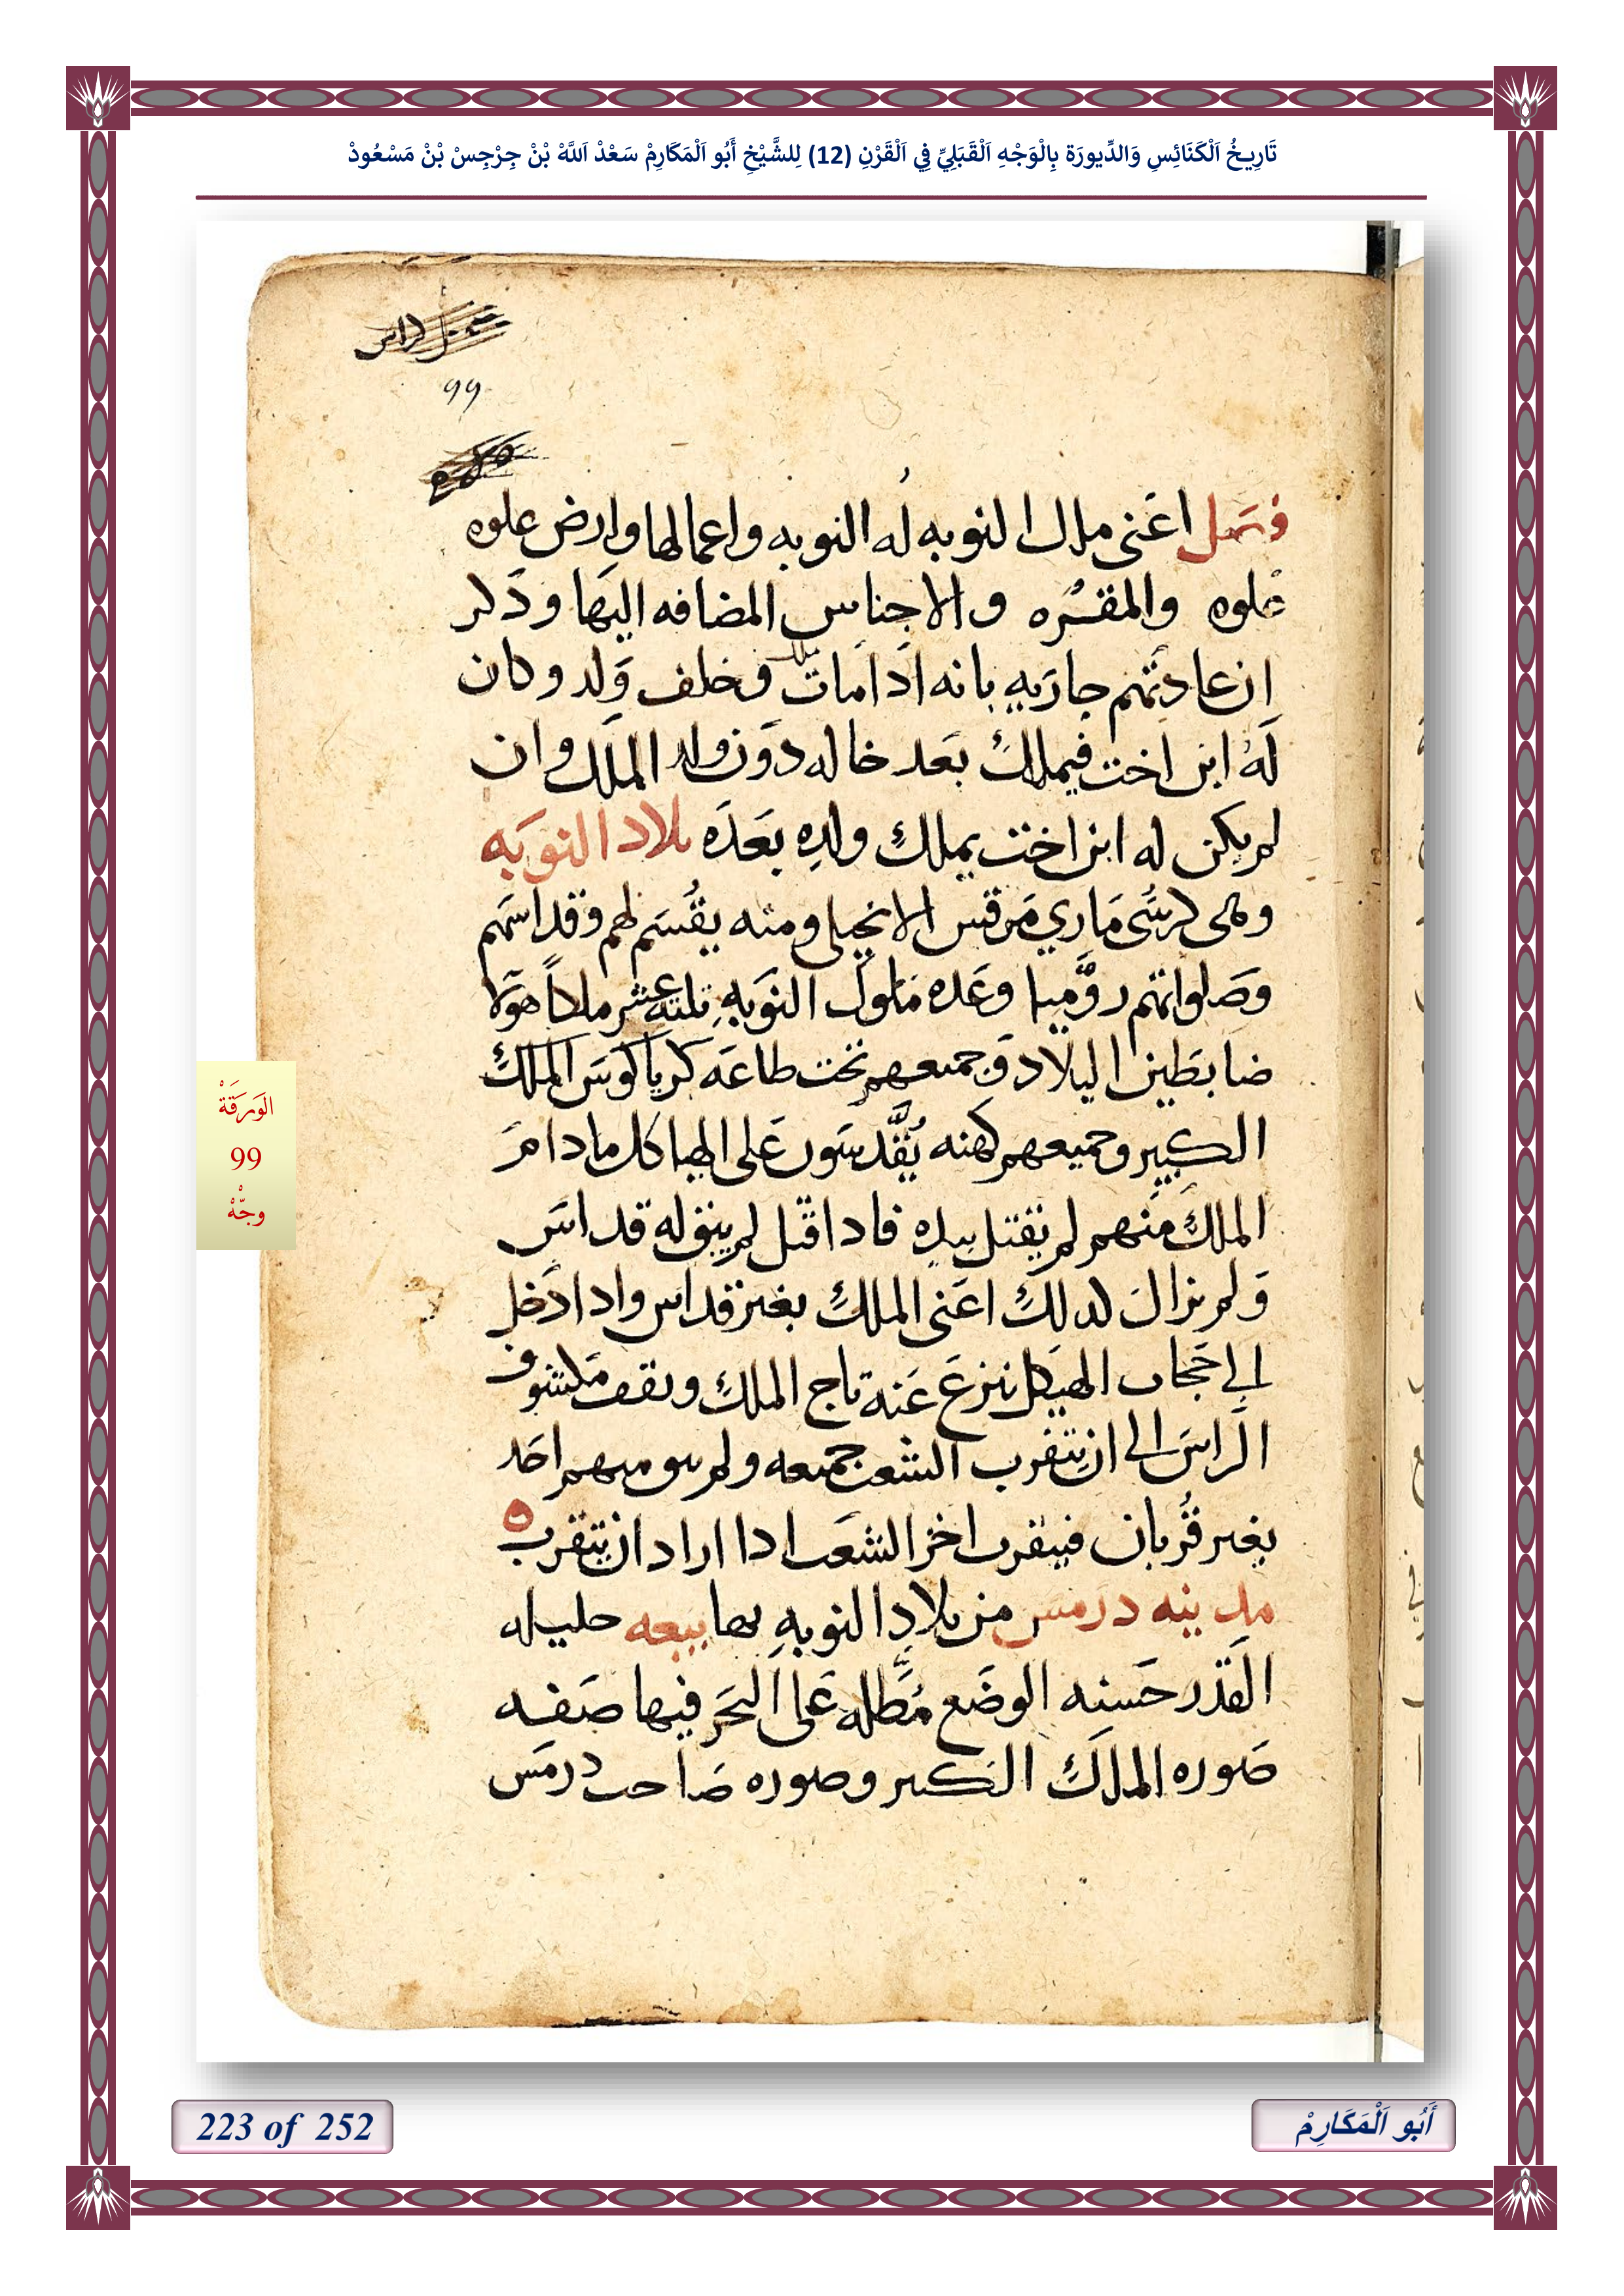 تَارِيخُ اَلْكَنَائِسِ وَالدِّيورَة بِالْوَجْهِ اَلْقَبَلِيِّ فِي اَلْقَرْنِ (12) لِلشَّيْخِ أَبُو اَلْمَكَارِمْ سَعْدْ اَللَّهْ بْنْ جِرْجِسْ بْنْ مَسْعُودْ
99
فصل اعنى ملك النوبه له النوبه واعمالها وارض علوه
علوه والمقره والاجناس المضافه اليها وذكر
ان عادتهم جاريه بانه ادا مات ملك وخلف ولد وكان
له ابن اخت فيملك بعد خاله دون ولد الملك وان
لم يكن له ابن اخت يملك ولده بعده بلاد النوبه
وهى كرسى ماري مرقس الانجيلى ومنه يقسم لهم وقداسهم
وصلواتهم روميا وعده ملوك النوبه تلته عشر ملكاً هولا
ضابطين البلاد وجميعهم تحت طاعه كرياكوس الملك
الكبير وجميعهم كهنه يقدسون على الهياكل مادام
الملك منهم لم يقتل بيده فادا قتل لم يبق له قداس
ولم يزال كدلك اعنى الملك بغير قداس وادا ادخل
الي حجاب الهيكل ينزع عنه تاج الملك ويقف مكشوف
الراس الى ان يتقرب الشعب جميعه ولم يبق منهم احد
بغير قربان فيتقرب اخر الشعب ادا اراد ان يتقرب
مدينه درمس من بلاد النوبه بها بيعه جليله
القدر حسنه الوضع مطله على البحر فيها صفه
صوره الملك الكبير وصوره صاحب درمس
الوَرَقَةْ
99
وجّهْ
223 of 252
أَبُو اَلْمَكَارِمْ